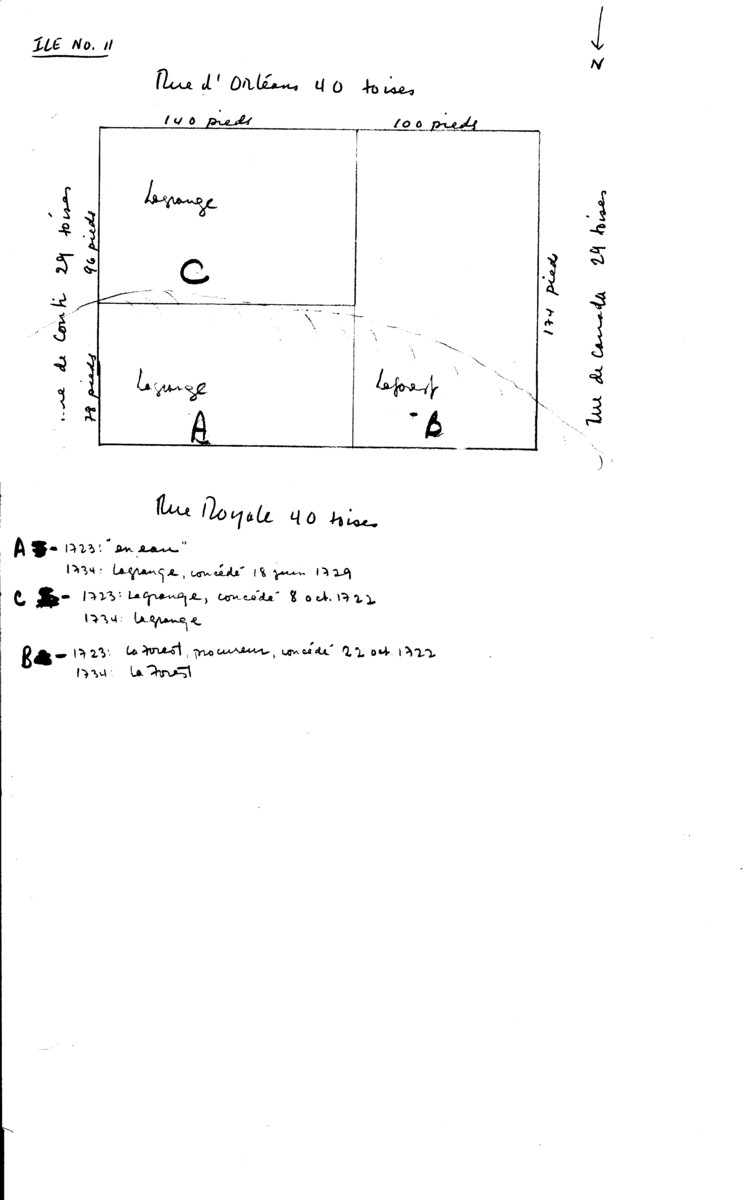 ILE No. 11
N
Rue d'Orléans 40 toises
140 pieds
100 pieds
Lagrange
C
96 pieds
rue de Conti 29 toises
78 pieds
Lagrange
A
Laforest
B
174 pieds
Rue de Canada 29 toises
Rue Royale 40 toises
A - 1723: "en eau"
1734: Lagrange, concédé 18 juin 1729
C - 1723: Lagrange, concédé 8 oct. 1722
1734: Lagrange
B - 1723: La Forest, procureur, concédé 22 oct 1722
1734: La Forest